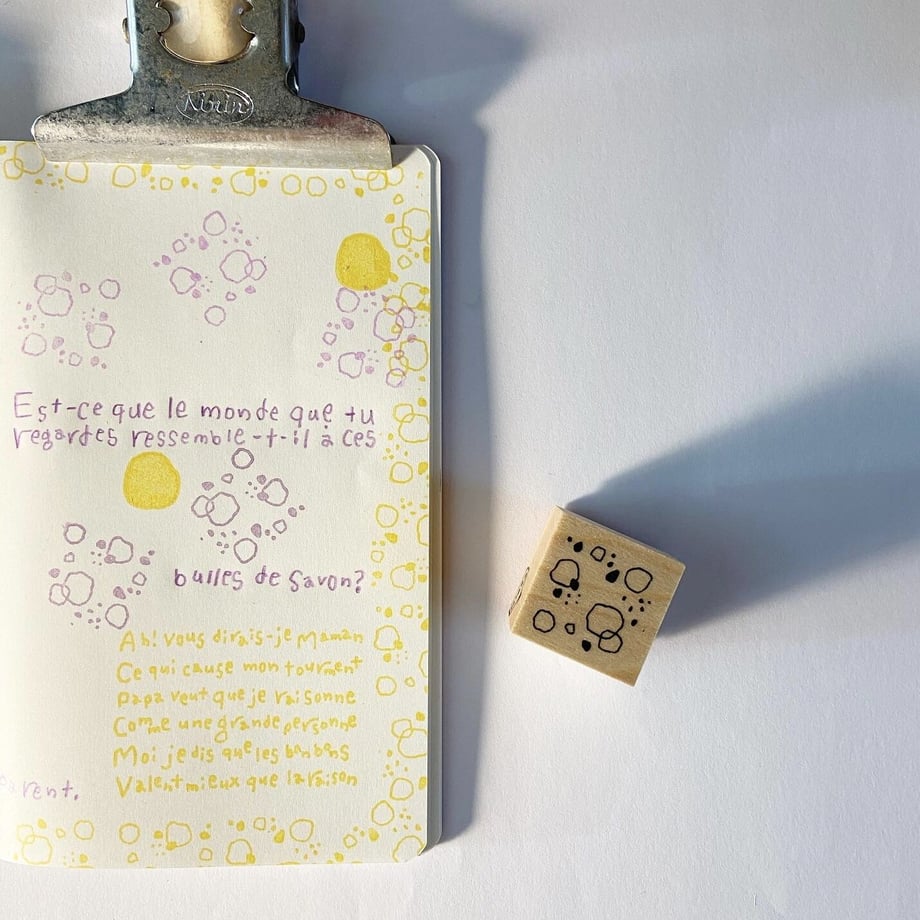 Nirin
Est-ce que le monde que tu
regardes ressemble-t-il à ces
bulles de savon?
Ah! vous dirais-je Maman
Ce qui cause mon tourment
Papa veut que je raisonne
Comme une grande personne
Moi je dis que les bonbons
Valent mieux que la raison